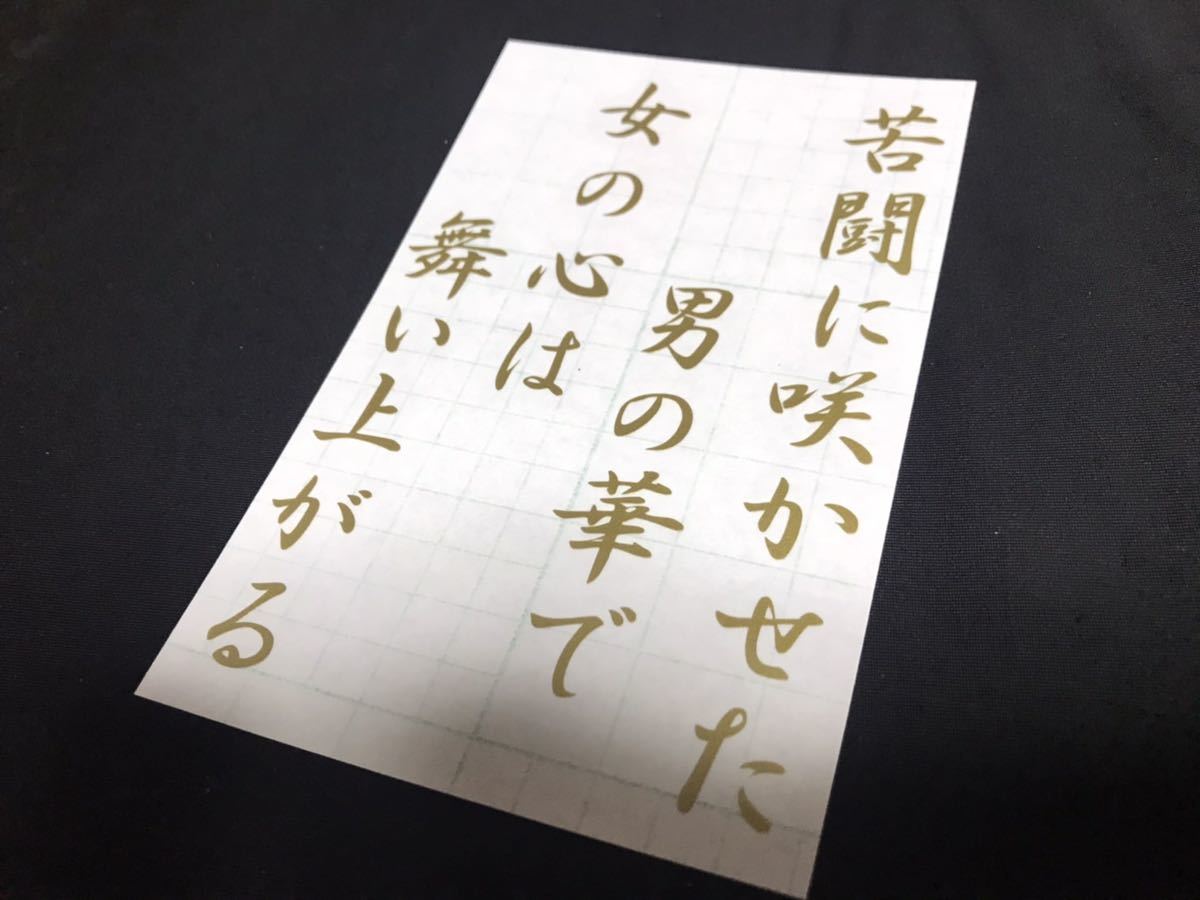 苦闘に咲かせた
男の華で
女の心は
舞い上がる